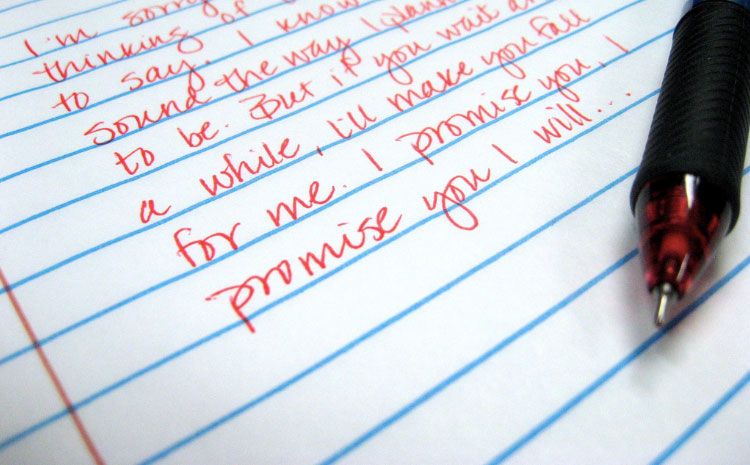 I'm sorry
thinking of
to say. I know
sound the way I plann
to be. But if you wait ar
a while, I'll make you fall
for me. I promise you, I
promise you I will...